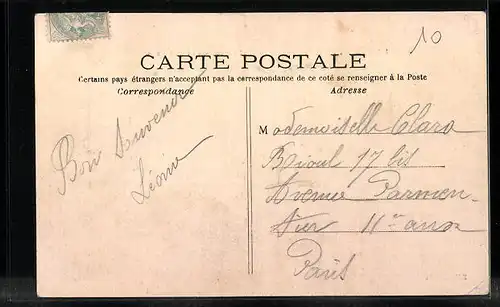 10
CARTE POSTALE
Certains pays étrangers n'acceptant pas la correspondance de ce coté se renseigner à la Poste
Correspondance
Adresse
Bon Souvenir
Léonie
Mademoiselle Clara
17 bis
Avenue Parmen-
tier 11e
Paris